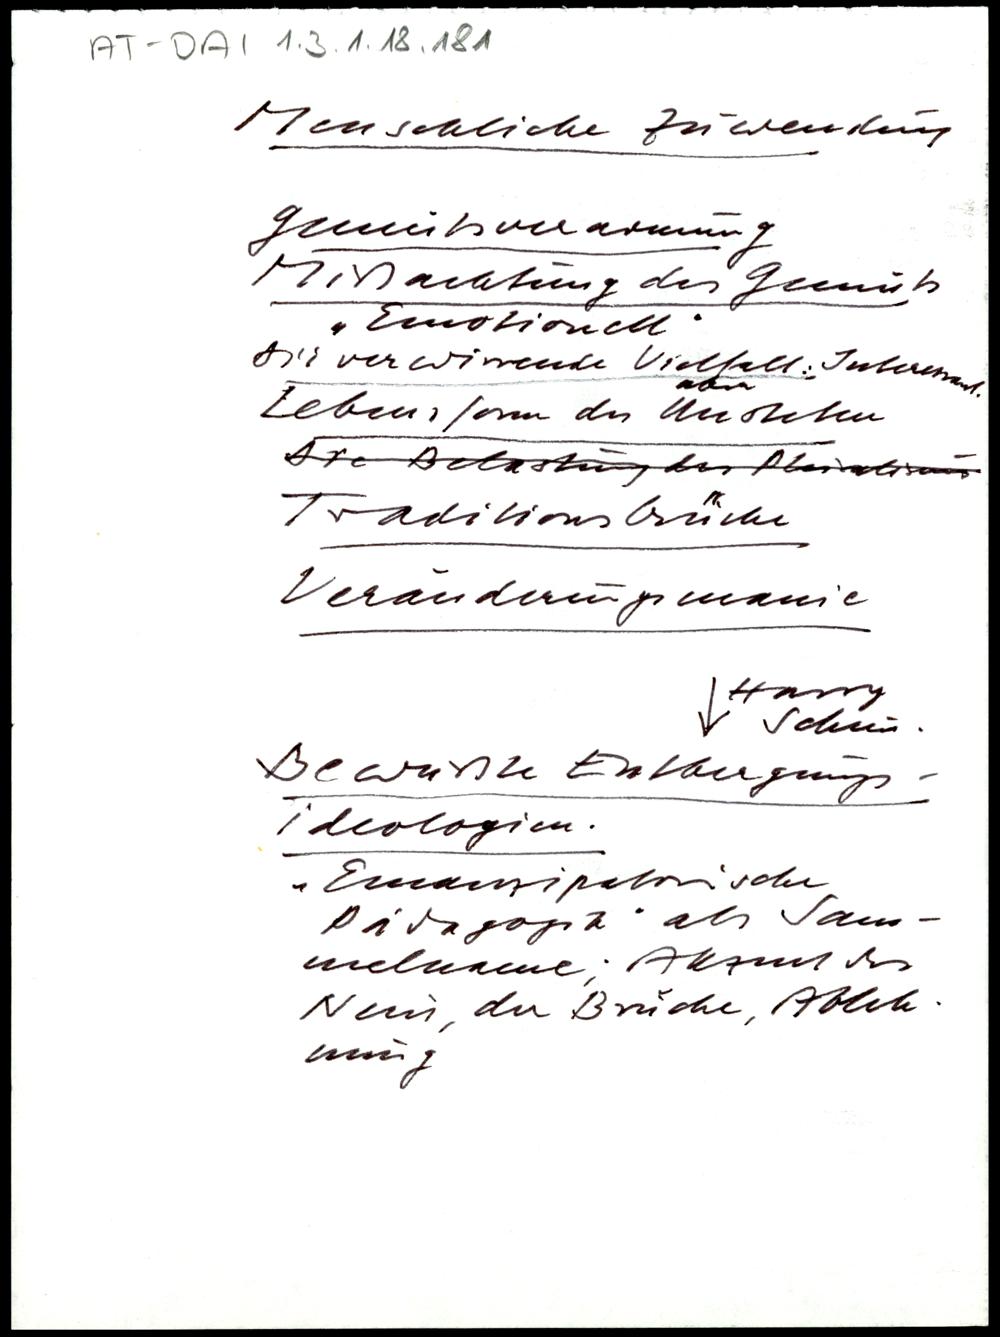 AT-DAI 1.3.1.18.181
Menschliche Zuwendung
Gemütsverarmung
Mißachtung des Gemüts
"Emotionell"
Die verwirrende Vielfalt: Interessant.
aber
Lebensform des Unsteten
Die Belastung des Pluralismus
Traditionsbrüche
Veränderungsmanie
↓ Harry
Schm.
Bewußte Entbergungs-
ideologien.
"Emanzipatorische
Pädagogik" als Sam-
melname; Akzent des
Nein, der Brüche, Ableh-
nung